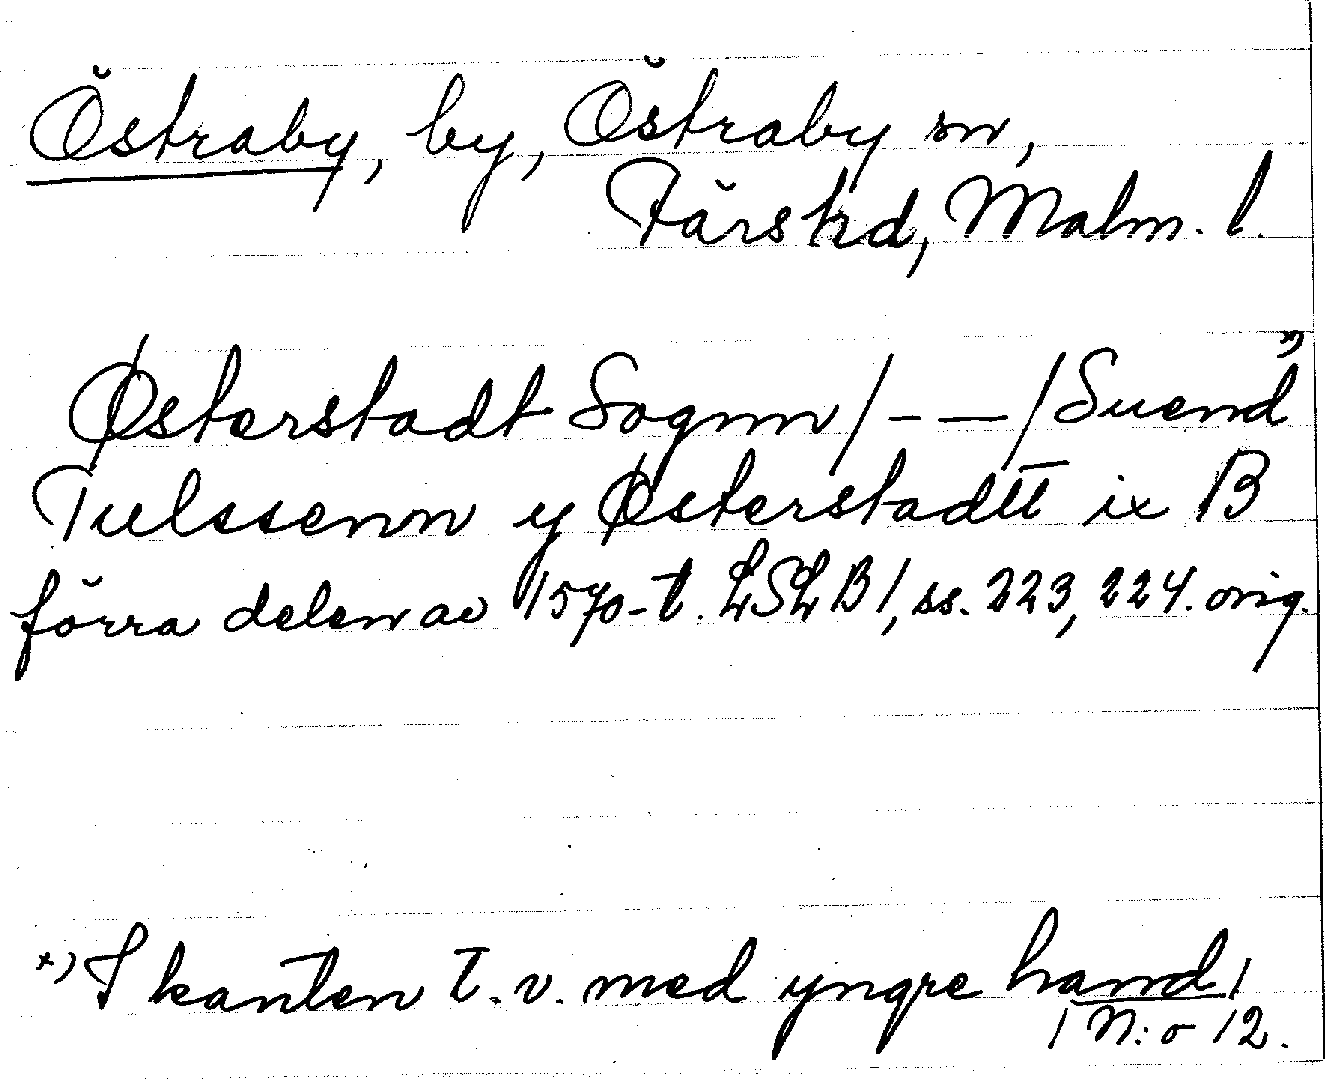 Östraby, by, Östraby sn,
Färs hd, Malm. l.
Østerstadt Sognn /- —/ Suend *)
Tuelssenn y Østerstadtt ix B
förra delen av 1570-t. LSLB 1, ss. 223, 224. orig.
*) I kanten t.v. med yngre hand /
/ N:o 12.